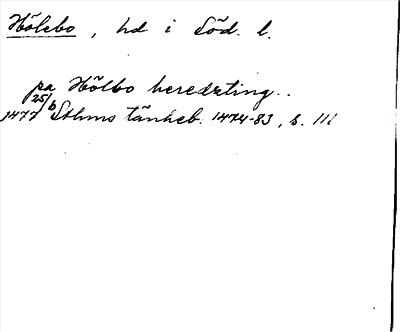 Hölebo, hd i Söd. l.
pa Hölbo heredzting..
1477 25/6 Sthms tänkeb. 1474-83, s.